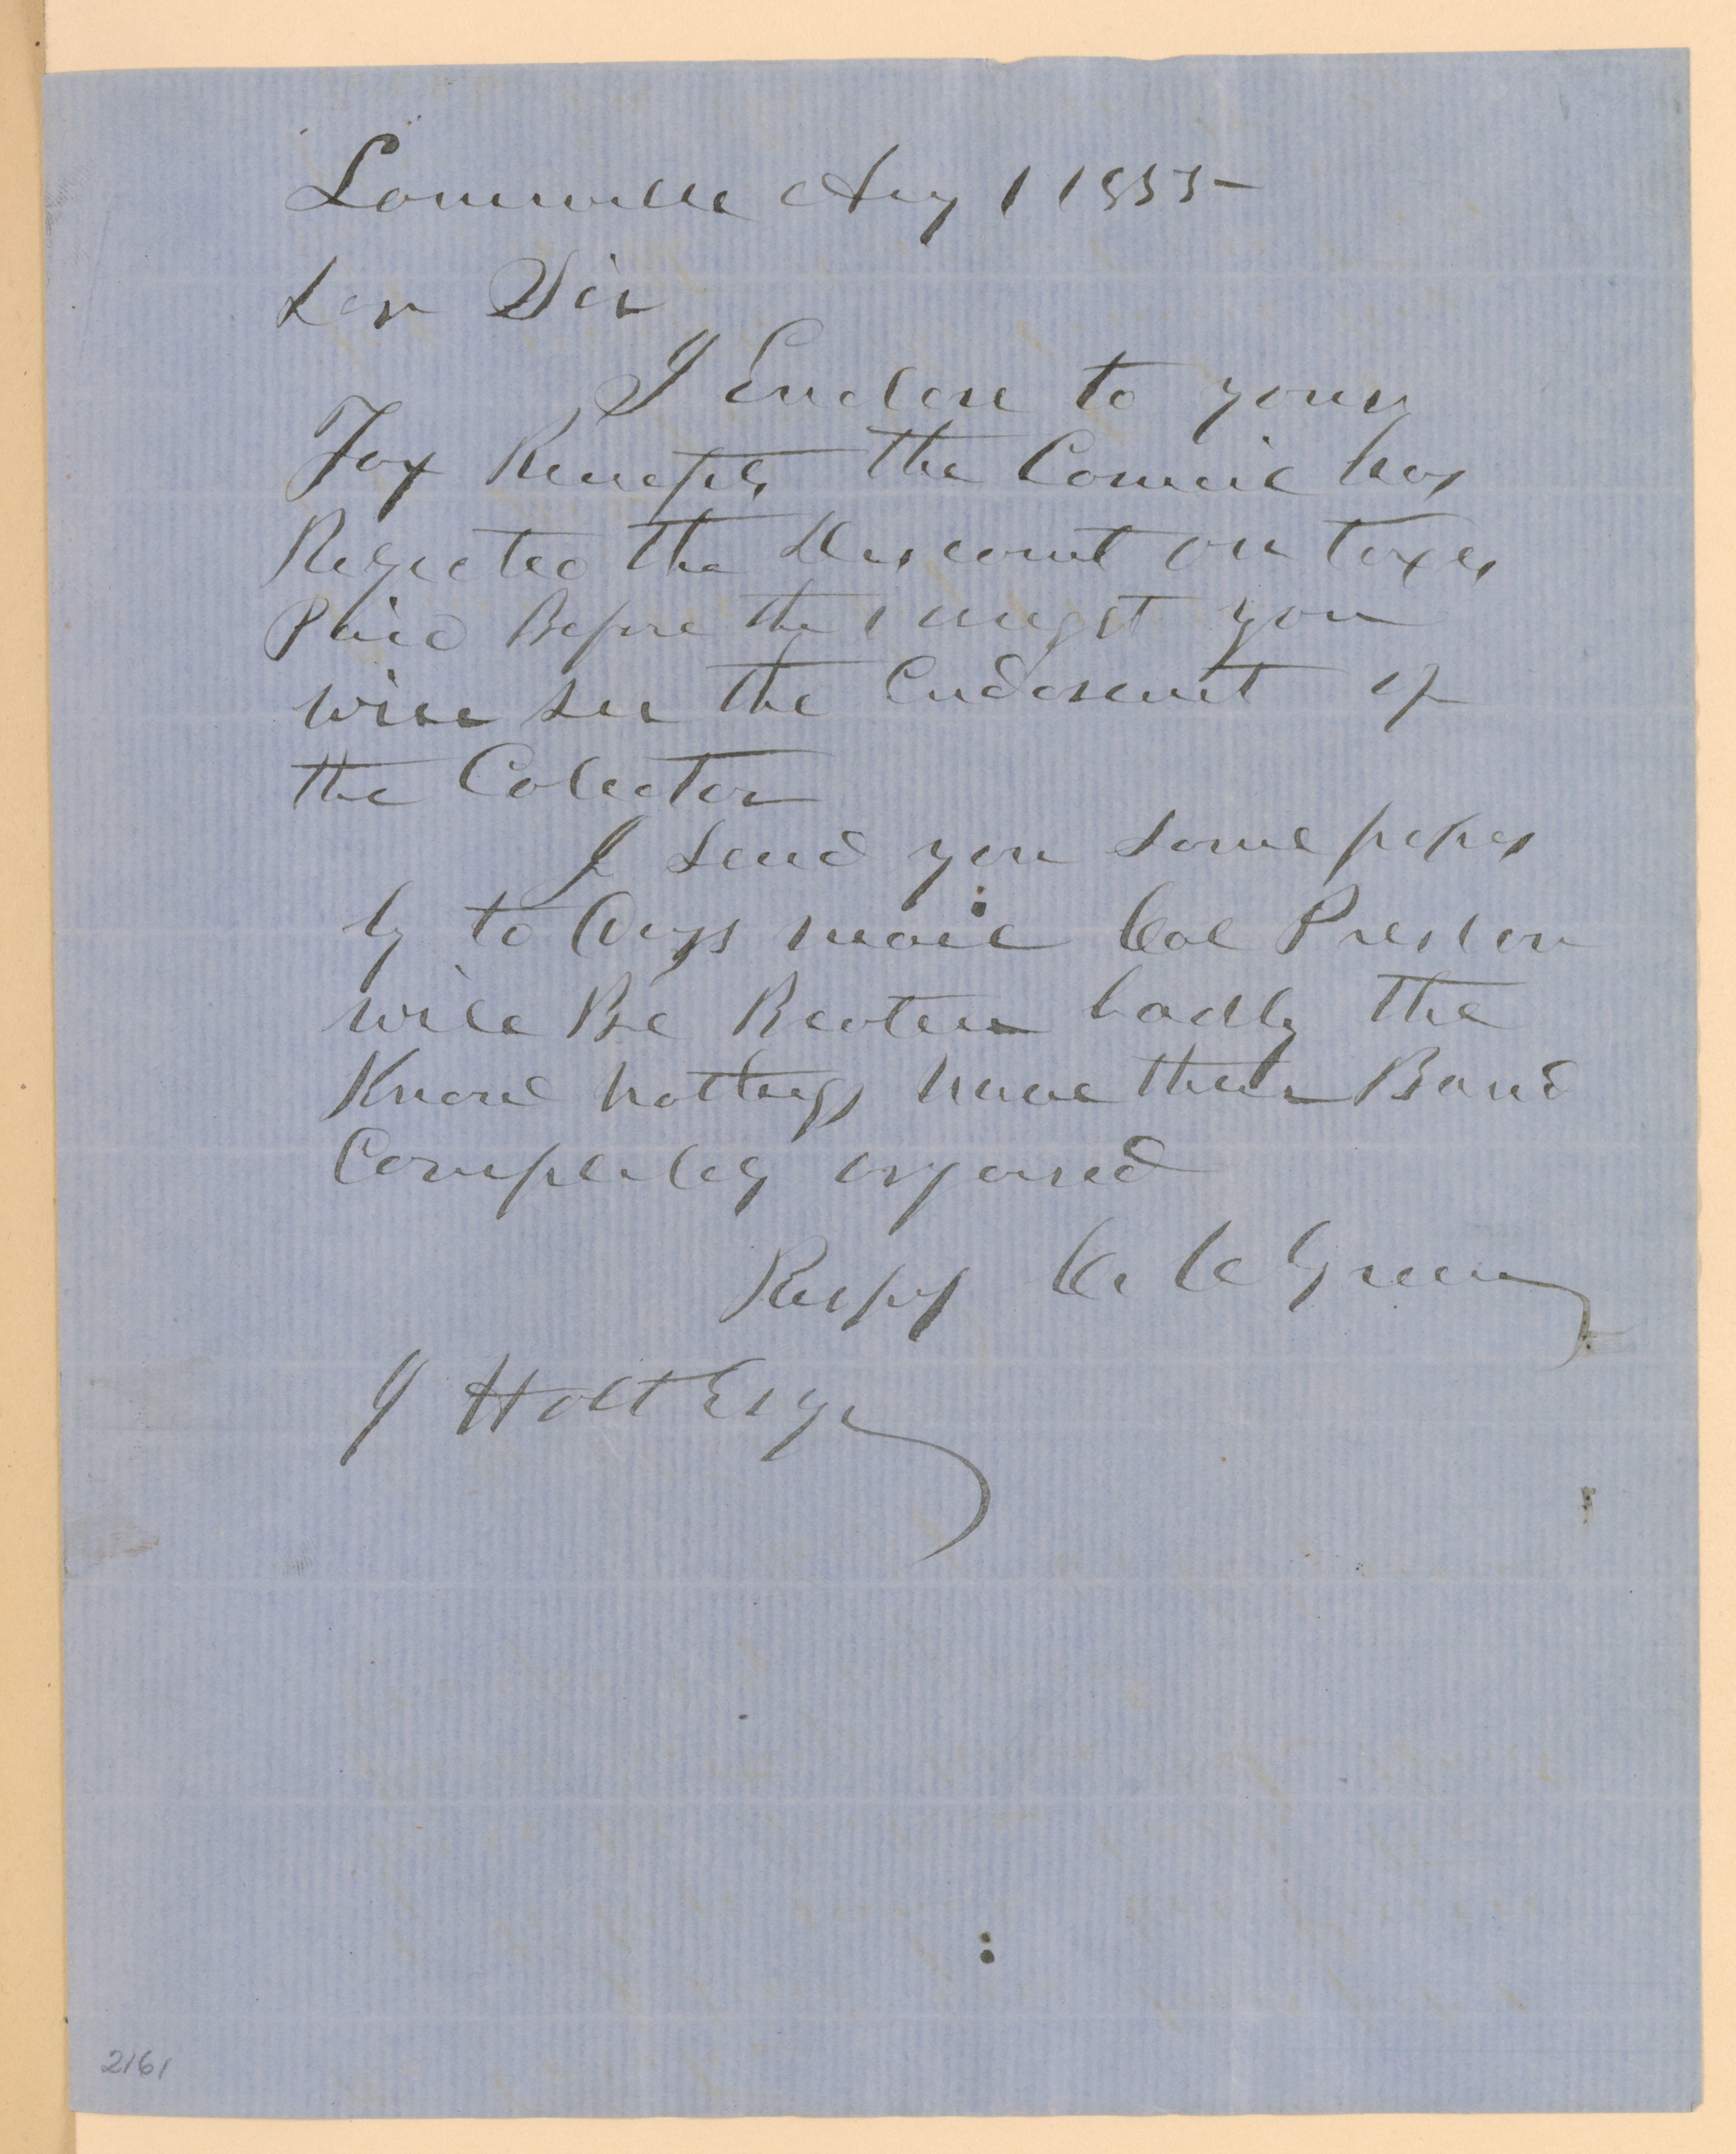 Louisville Aug 1 1855
Dear Sir
I Enclose to your
Tax Receipts the Council has
Rejected the Discount on taxes
Paid Before the 1 augst you
will see the Endorsment of
the Colector
I send you some papers
by to days mail Col Preston
will Be Beaten badly the
Know nothings have their Band
Completely organised
Respy C C Green
J Holt Esqr
2161